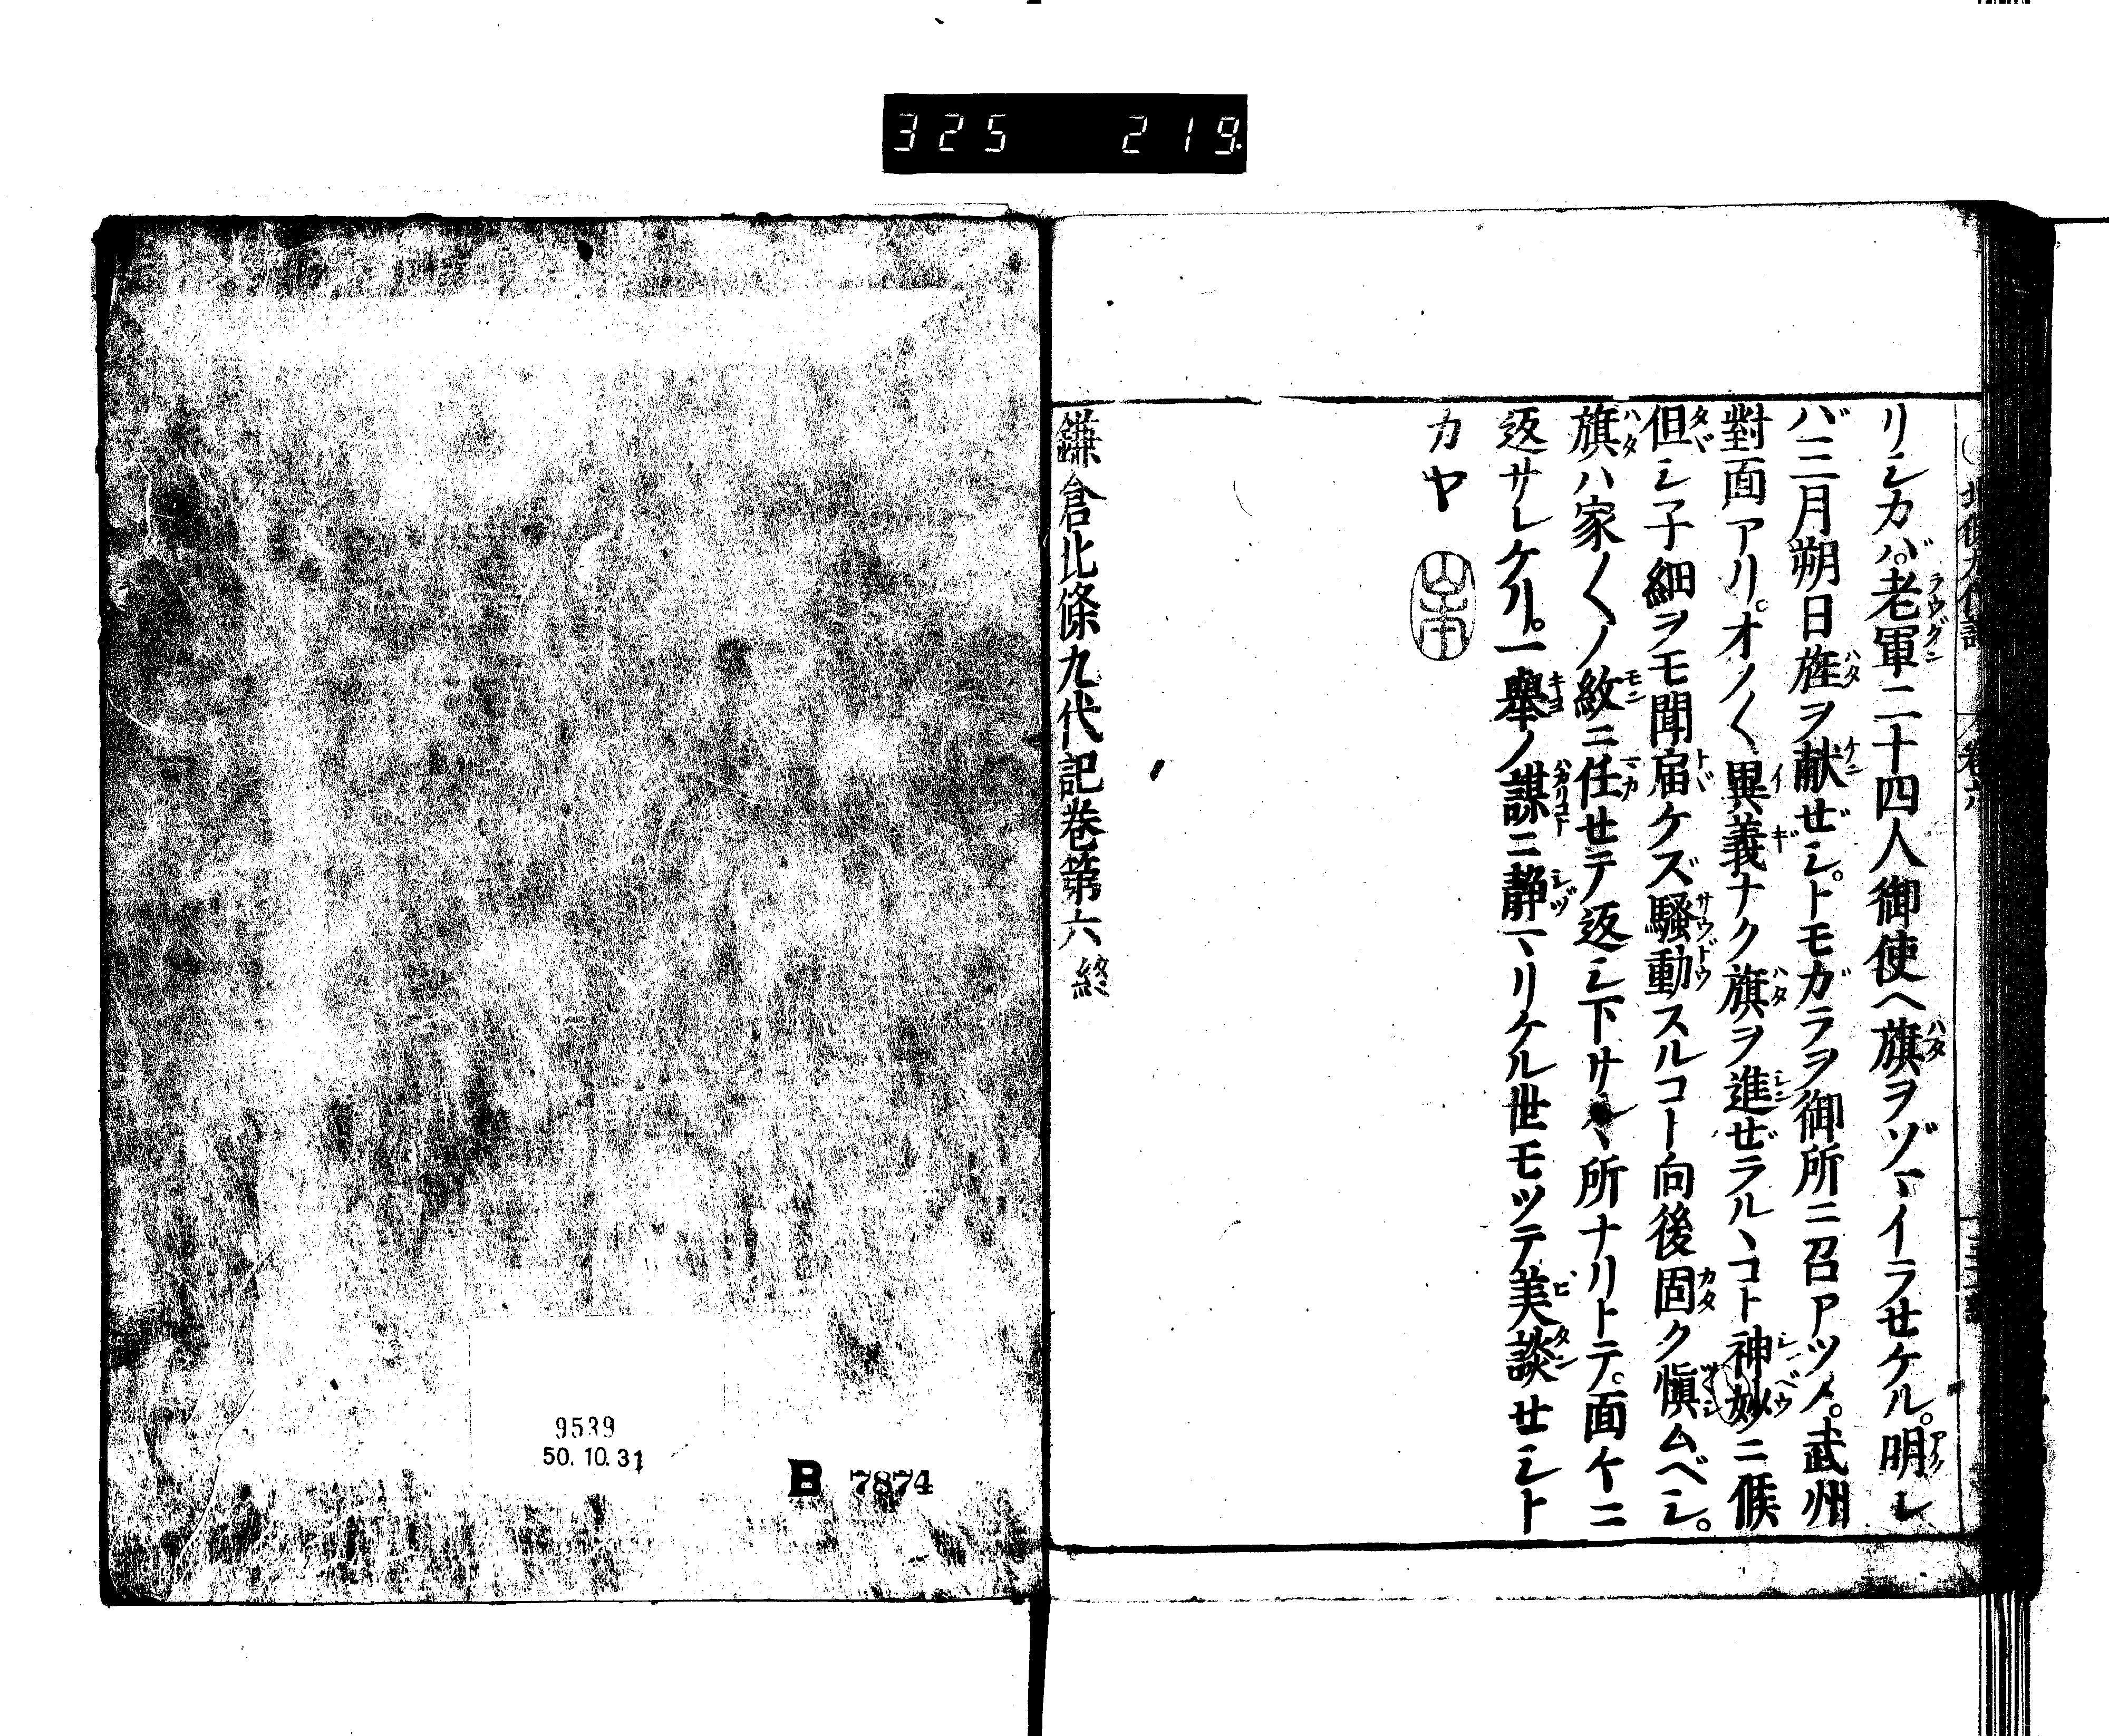 325 219
リシカバ。老軍二十四人御使ヘ旗ヲゾマイラセケル。明レ
バ三月朔日旌ヲ献ゼシ。トモガラヲ御所ニ召アツメ。武州
對面アリ。オノ〱異義ナク旗ヲ進ゼラルヽコト神妙ニ候
但シ子細ヲモ聞届ケズ騒動スルコト向後固ク愼ムベシ。
旗ハ家〱ノ紋ニ任セテ返シ下サルヽ所ナリトテ。面ケニ
返サレケリ。一舉ノ謀ニ静マリケル世モツテ美談セシト
カヤ
鎌倉北條九代記卷第六終
9539
50.10.31
B 7874